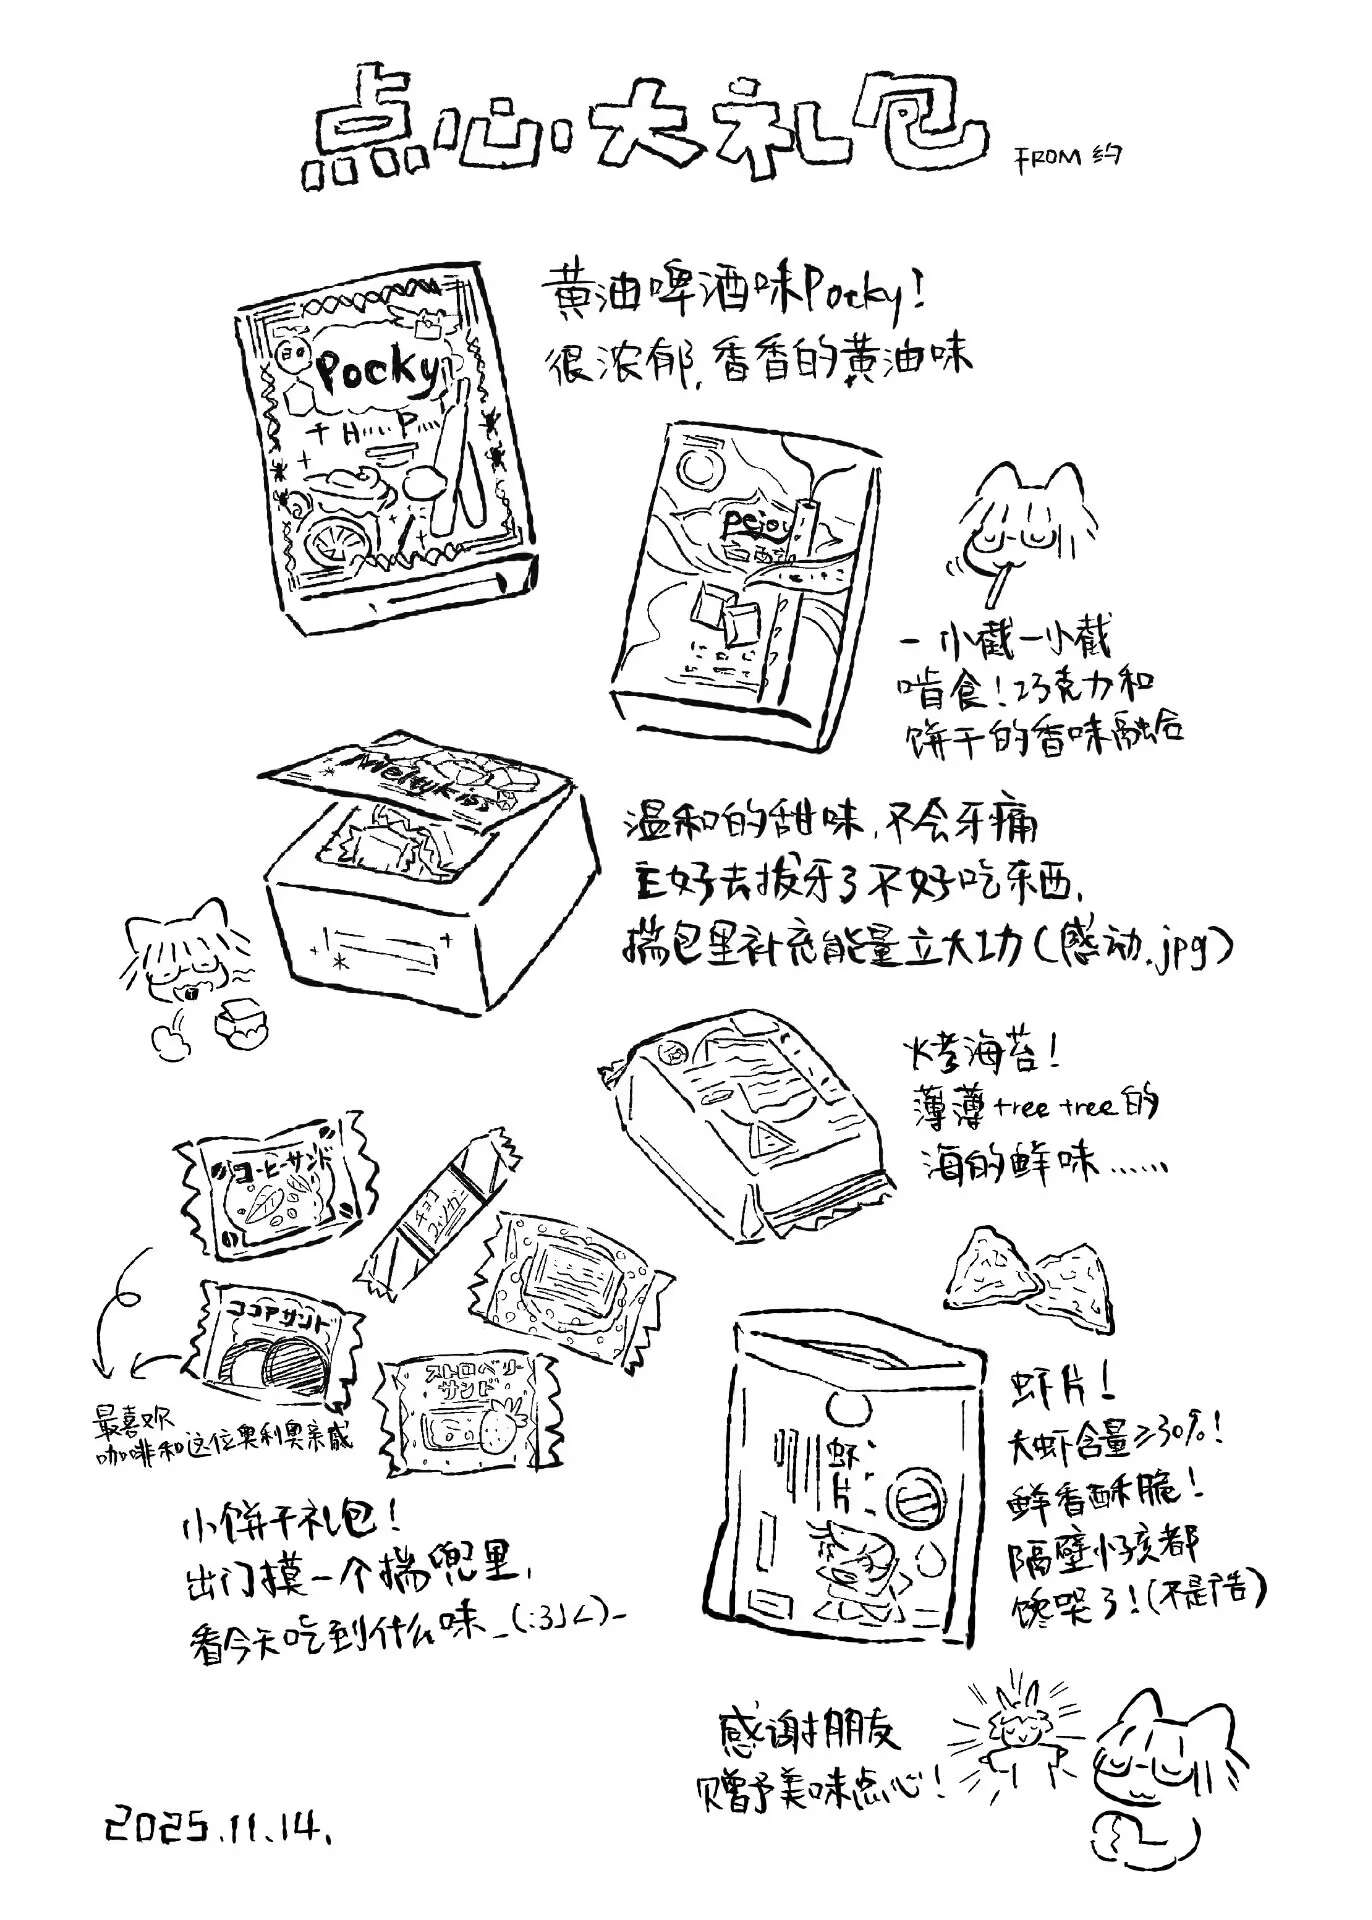 点心大礼包 FROM 约
黄油啤酒味Pocky!
很浓郁,香香的黄油味
Pocky
H.... P....
pejoy
一小截一小截
啃食!巧克力和
饼干的香味融合
Meltykiss
温和的甜味,不会牙痛
主好去拔牙了不好吃东西,
揣包里补充能量立大功(感动.jpg)
烤海苔!
薄薄tree tree的
海的鲜味……
コーヒーサンド
チョコ
ココアサンド
ストロベリー
サンド
最喜欢
咖啡和这位奥利奥亲戚
小饼干礼包!
出门摸一个揣兜里,
看今天吃到什么味_(:3」∠)_
虾片
虾片!
大虾含量≥30%!
鲜香酥脆!
隔壁小孩都
馋哭了!(不是广告)
感谢朋友
赠予美味点心!
2025.11.14.